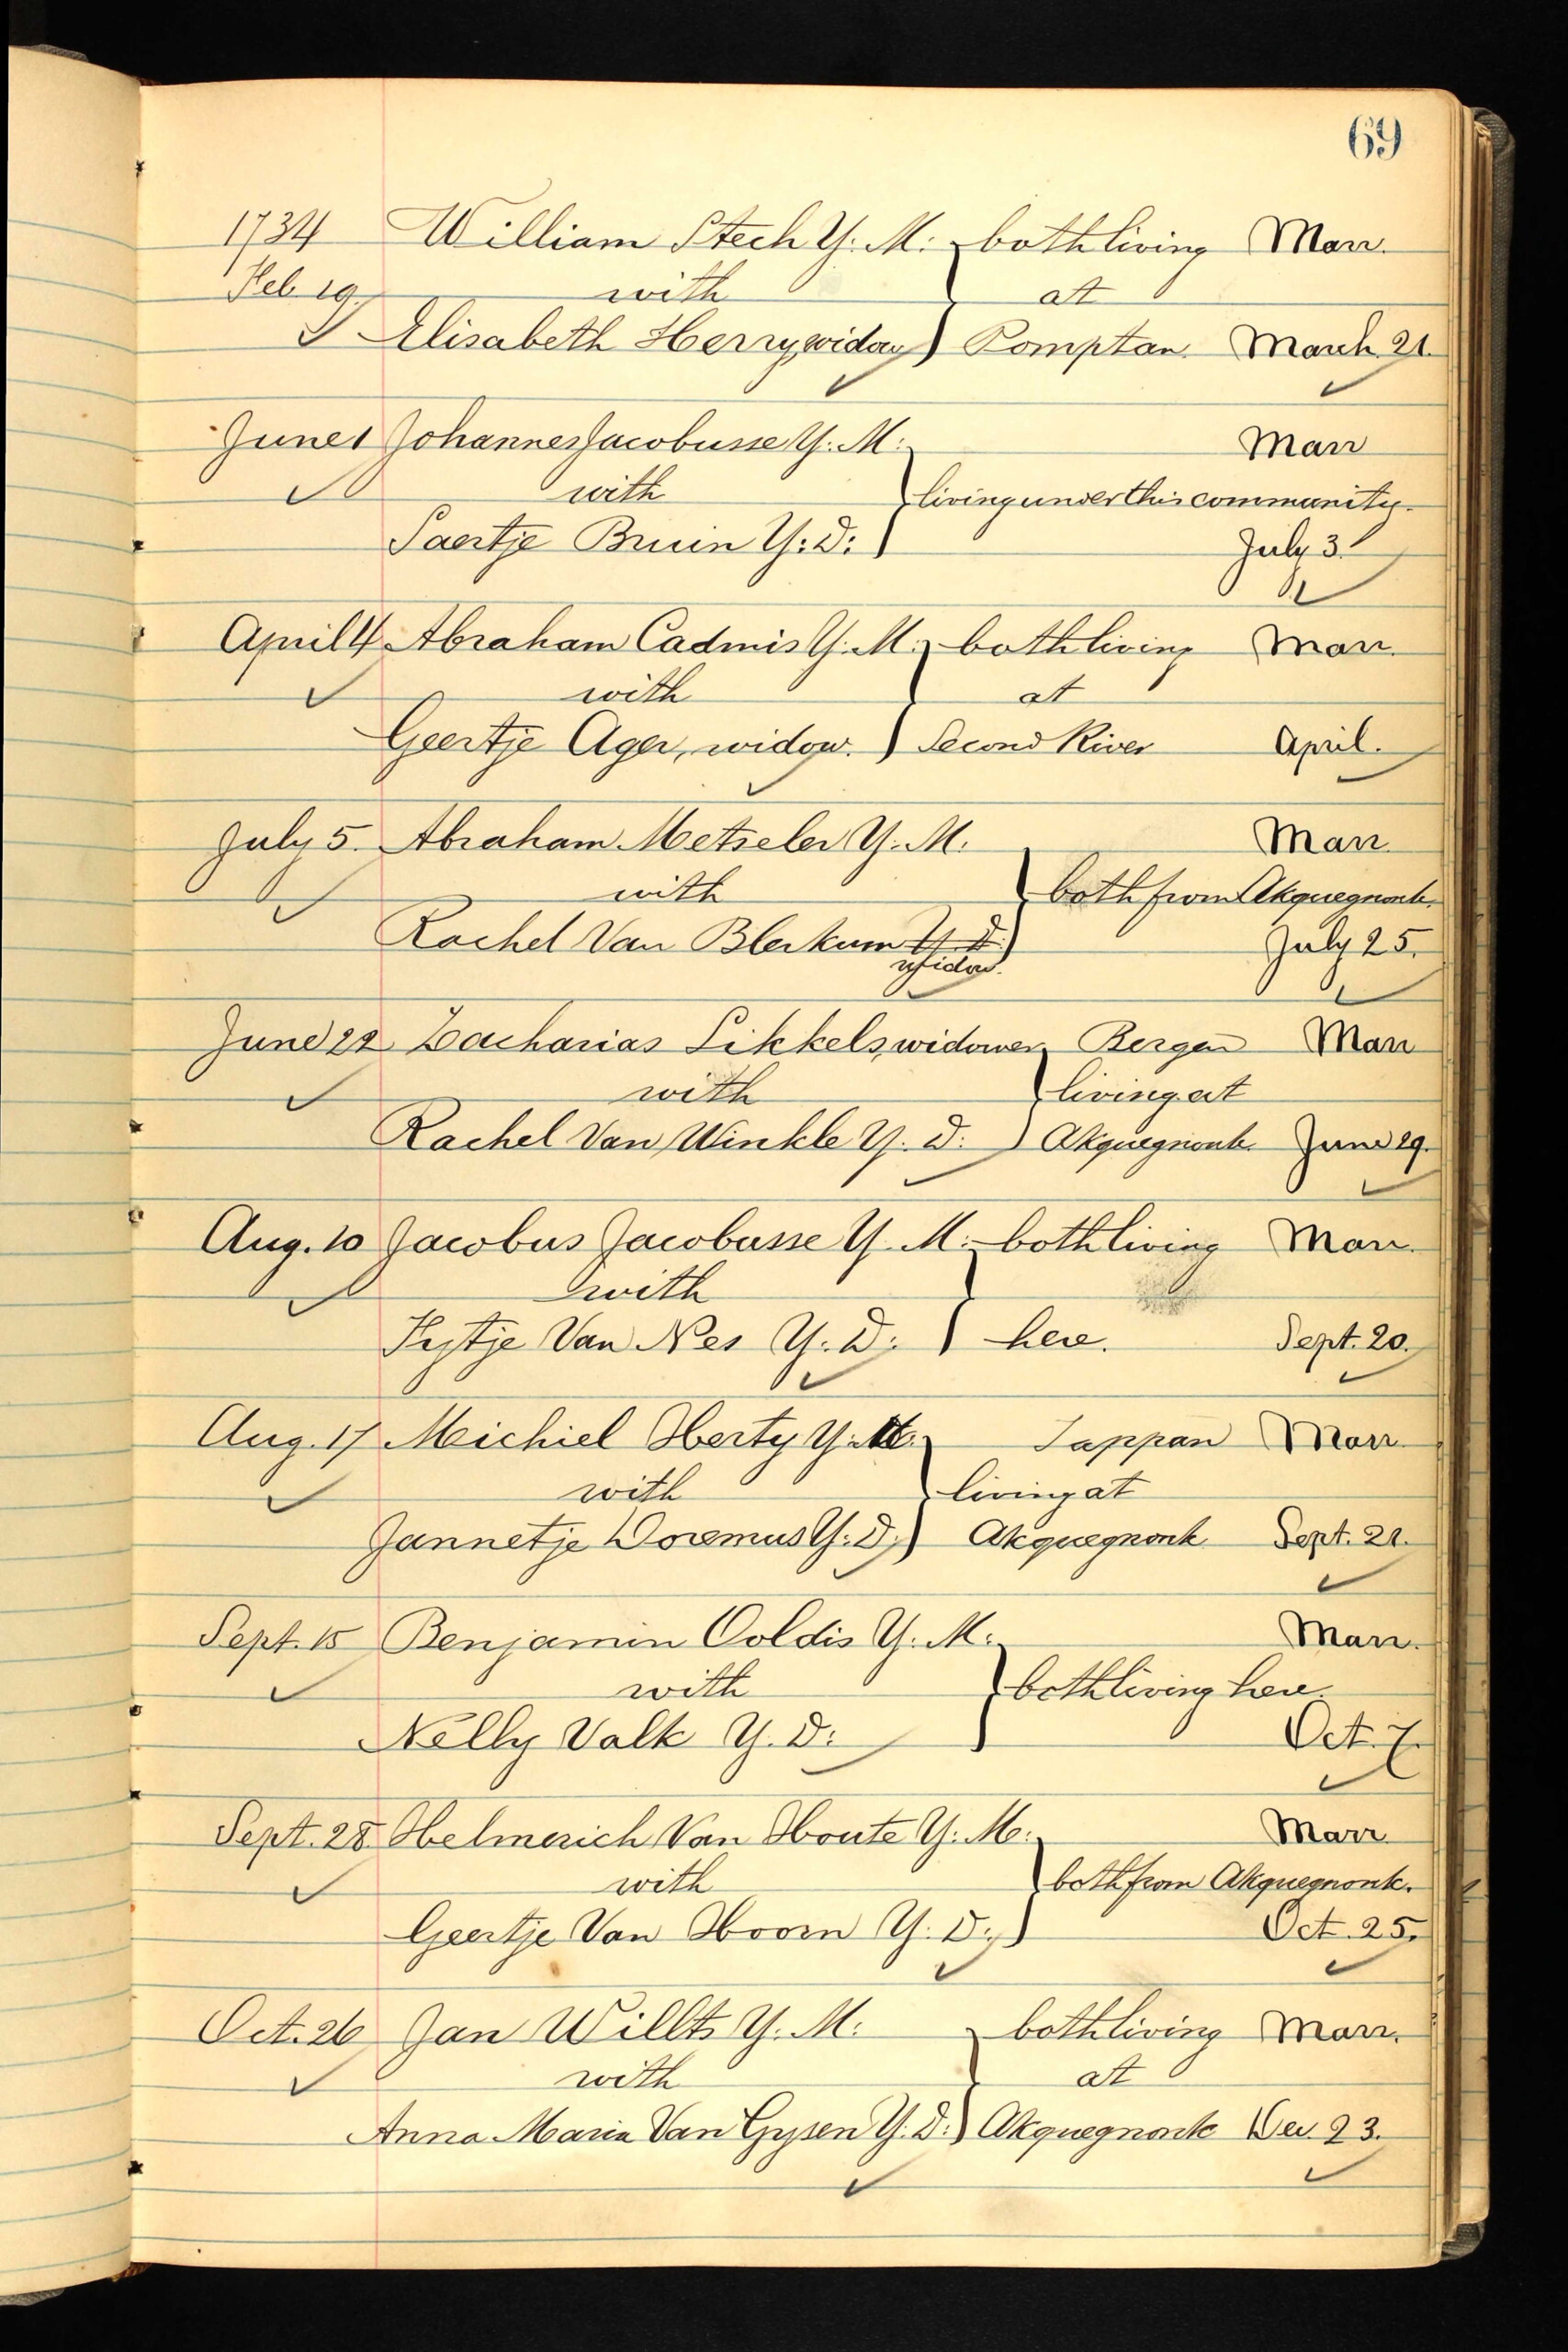 69
1734 William Stech Y. M: both living Marr.
Feb 19 with at
Elisabeth Herry, widow Pomptan. March 21.
June 1 Johannes Jacobusse Y. M: Marr
with living under this community.
Saertje Bruin Y: D: July 3.
April 4 Abraham Cadmis Y. M: both living Marr.
with at
Geertje Ager, widow. Second River April.
July 5. Abraham Metseler Y. M: Marr.
with both from Akquegnonk.
Rachel Van Blerkum Y. D: July 25.
widow.
June 22 Zacharias Sikkels, widower Bergen Marr
with living at
Rachel Van Winkle Y. D: Akquegnonk. June 29.
Aug. 10 Jacobus Jacobusse Y. M: both living Marr.
with
Fytje Van Nes Y. D: here. Sept. 20.
Aug. 17 Michiel Herty Y: M: Tappan Marr.
with living at
Jannetje Doremus Y: D: Akquegnonk Sept. 21.
Sept. 15 Benjamin Ooldis Y. M: Marr.
with both living here.
Nelly Valk Y. D: Oct. 7.
Sept. 28. Helmerich Van Houte Y. M: Marr
with both from Akquegnonk.
Geertje Van Hoorn Y. D: Oct. 25.
Oct. 26 Jan Willts Y. M: both living Marr.
with at
Anna Maria Van Gysen Y. D: Akquegnonk Dec. 23.